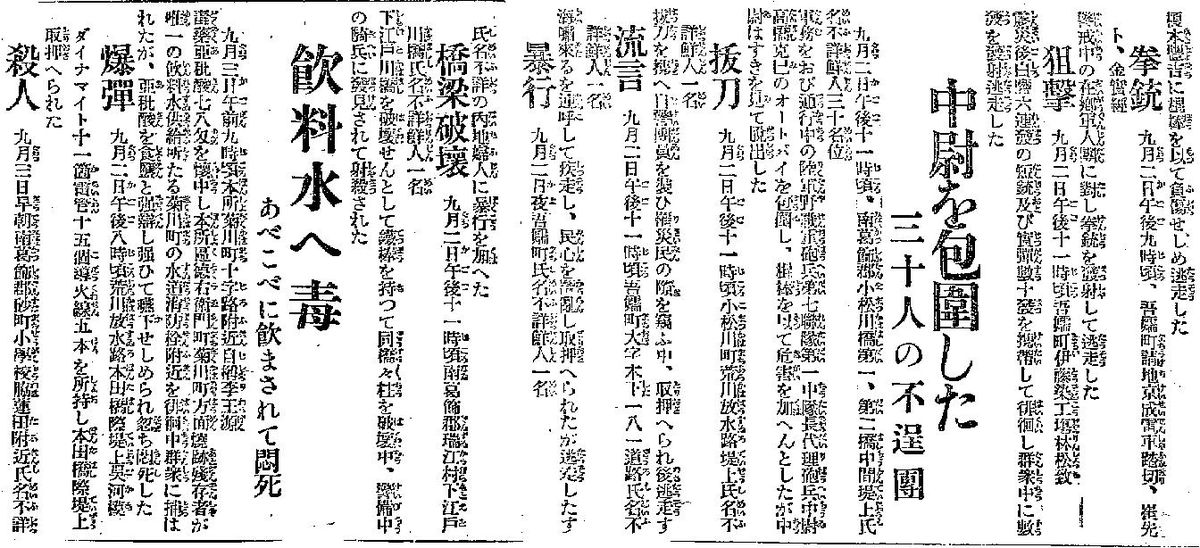 拳銃 九月二日午後九時頃、吾嬬町請地京成電車踏切、崔先
ト、金實經
狙撃 九月二日午後十一時頃吾嬬町伊藤染工場林松致
警戒中の在鄕軍人團に對し拳銃を發射して逃走した
中尉を包圍した
三十人の不逞團
九月二日午後十一時頃、南葛飾郡小松川橋第一、第二橋中間堤上氏
名不詳鮮人三十名位
軍務をおび通行中の陸軍野戰重砲兵第七聯隊第一中隊長代理砲兵中尉
高橋克己のオートバイを包圍し、棍棒を以て危害を加へんとしたが中
尉はすきを見て脫出した
拔刀 九月二日午後十一時頃小松川町荒川放水路堤上氏名不
詳鮮人一名
流言 九月二日午後十一時頃吾嬬町大字木下一八一道路氏名不
詳鮮人一名
海嘯來るを連呼して疾走し、民心を騷亂し取押へられたが逃走したす
暴行 九月二日夜吾嬬町氏名不詳鮮人一名
氏名不詳の內地婦人に暴行を加へた
橋梁破壞 九月二日午後十一時頃南葛飾郡瑞江村下江戶
川橋氏名不詳鮮人一名
下江戶川橋を破壞せんとして鐵棒を持つて同橋々柱を破壞中、警備中
の騎兵に發見されて射殺された
飮料水へ毒
あべこべに飮まされて悶死
九月三日午前九時頃本所菊川町十字路附近自稱李王源
毒藥亞砒酸七八匁を懷中し本所區德右衞門町菊川町方面燒跡殘存者が
唯一の飮料水供給所たる菊川町の水道消防栓附近を徘徊中群衆に捕は
れたが、亞砒酸を食鹽と强辯し强ひて嚥下せしめられ忽ち悶死した
爆彈 九月二日午後八時頃荒川放水路本田橋際堤上吳河模
ダイナマイト十一箇雷管十五個導火線五本を所持し本田橋際堤上
取押へられた
殺人 九月三日早朝南葛飾郡砂町小學校脇蓮田附近氏名不詳